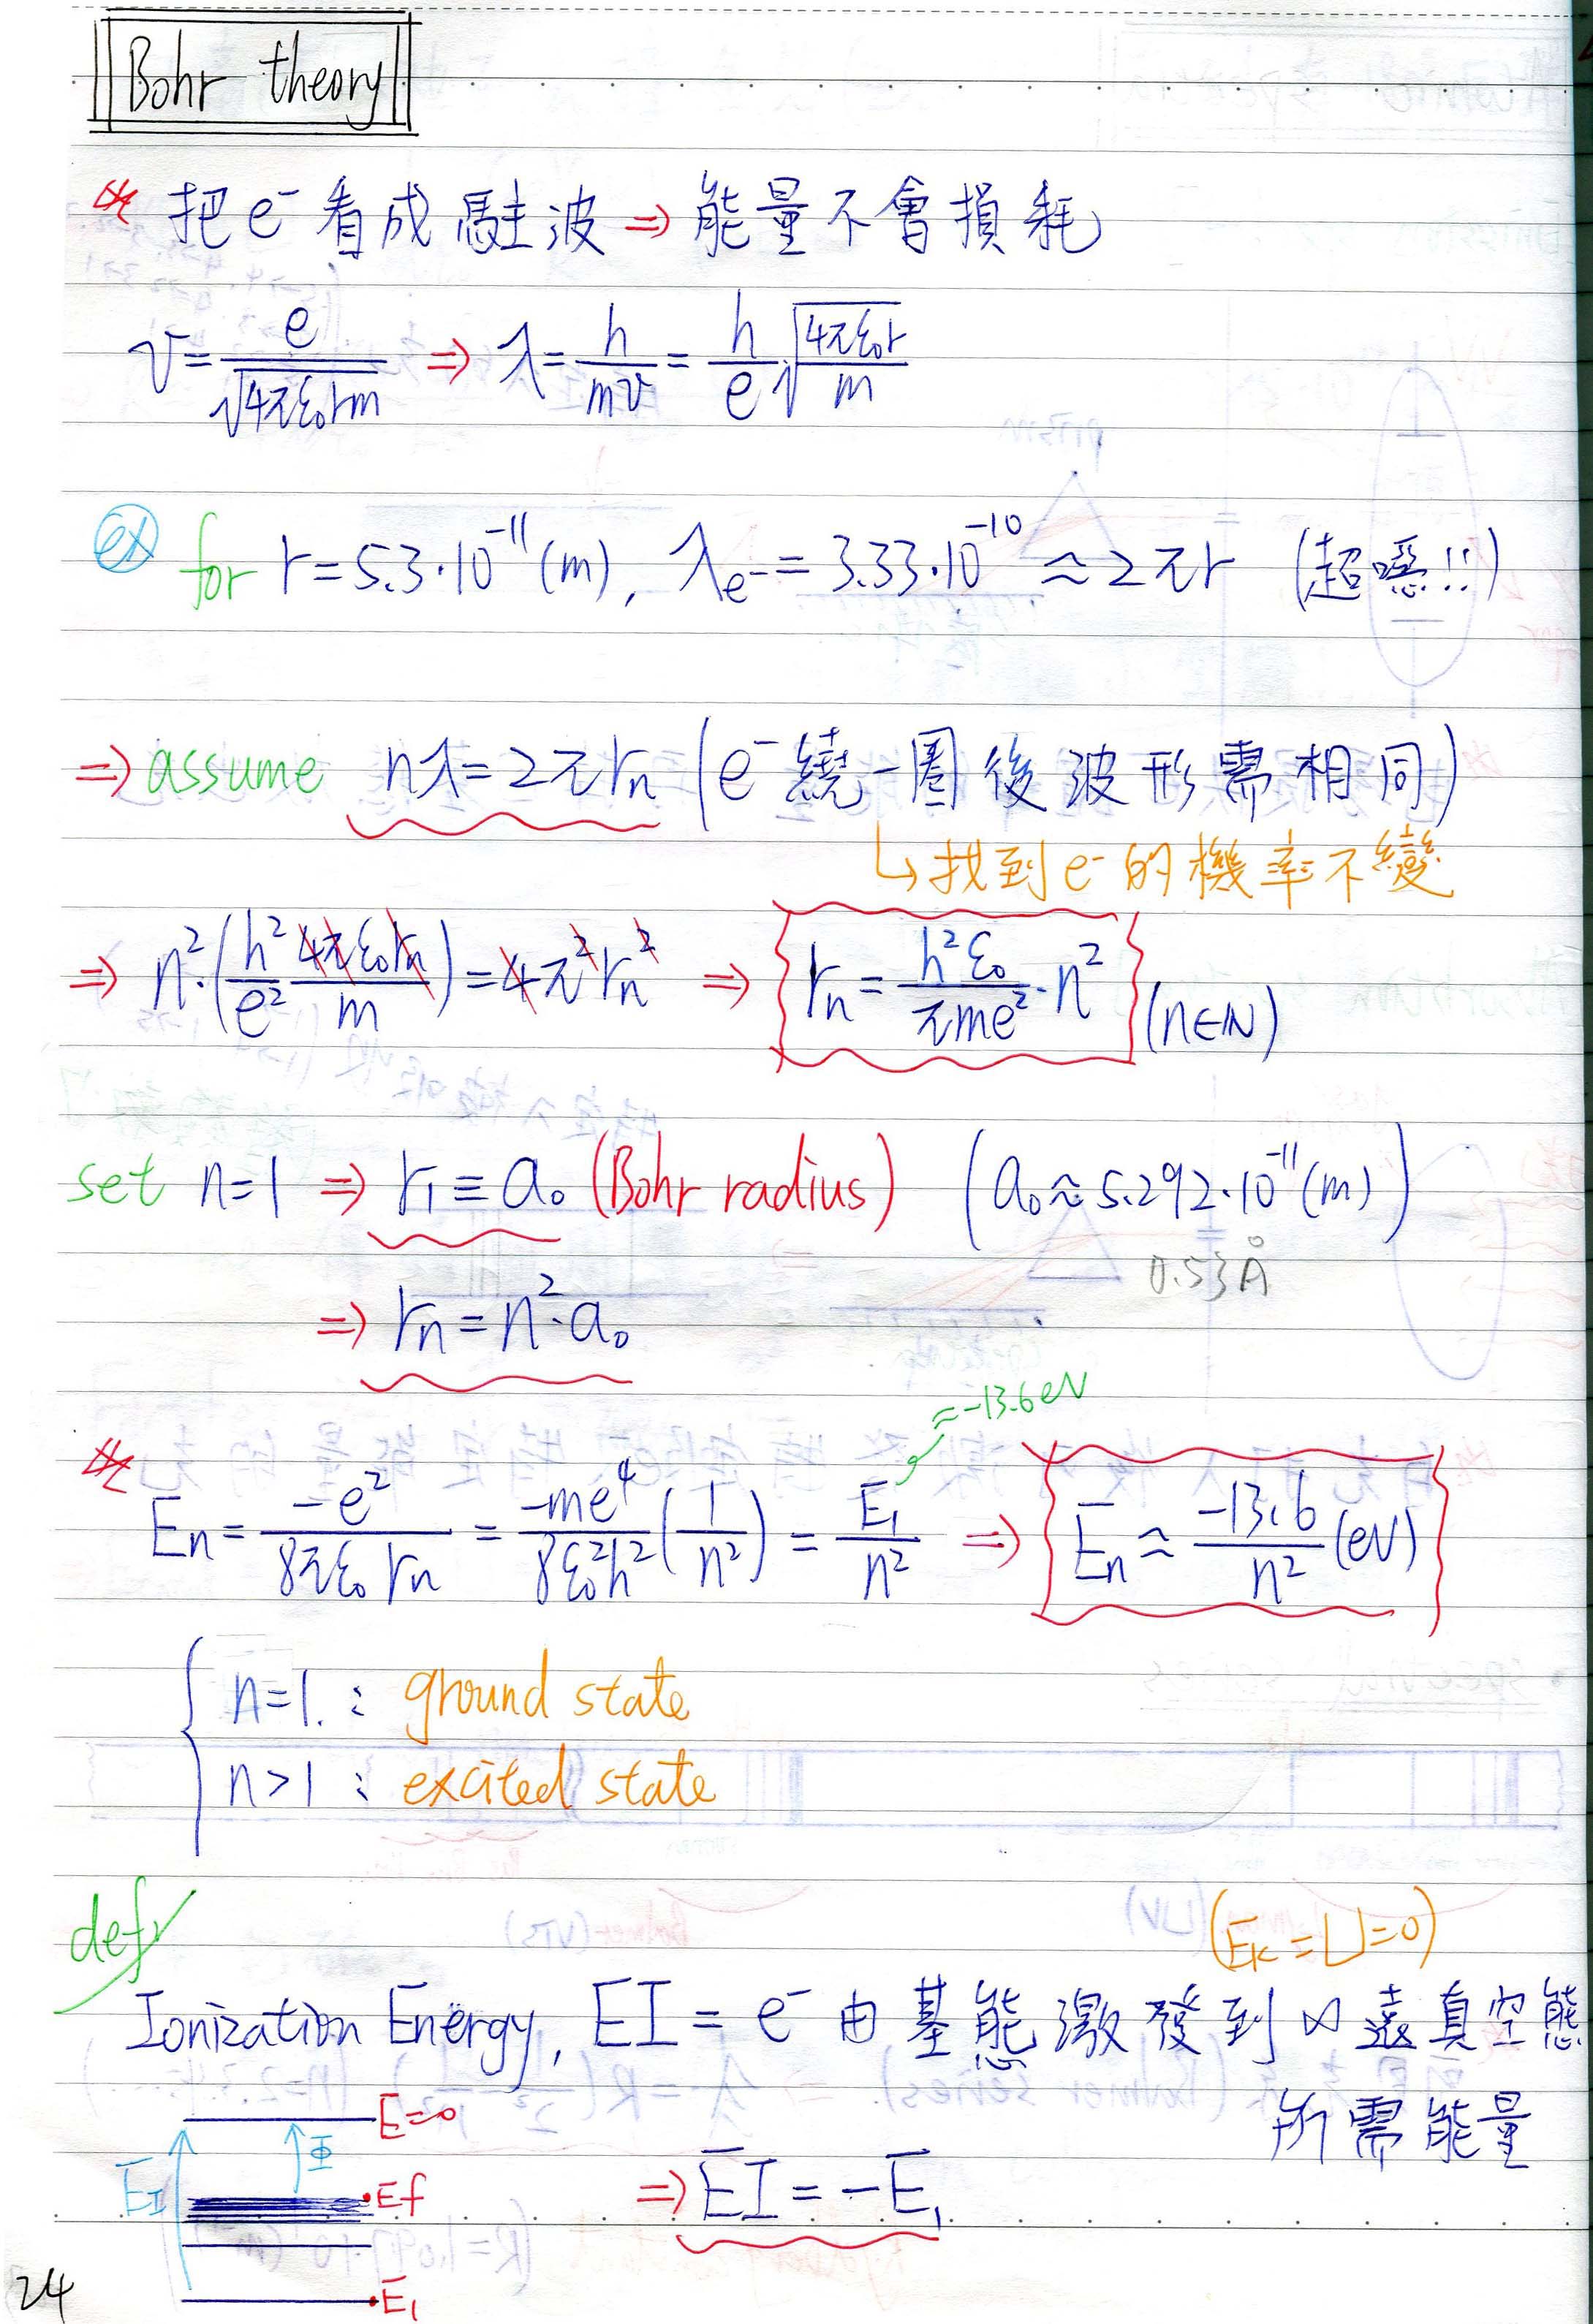 Bohr theory
※ 把 e⁻ 看成駐波 ⇒ 能量不會損耗
v = e/√(4πε₀rm) ⇒ λ = h/(mv) = (h/e)√(4πε₀r/m)
ex for r = 5.3·10⁻¹¹ (m), λe⁻ = 3.33·10⁻¹⁰ ≈ 2πr (超噁!!)
⇒ assume nλ = 2πrₙ (e⁻ 繞一圈後波形需相同)
↳ 找到 e⁻ 的機率不變
⇒ n²·(h²/e² · 4πε₀rₙ/m) = 4π²rₙ² ⇒ rₙ = h²ε₀/(πme²)·n² (n∈ℕ)
set n=1 ⇒ r₁ ≡ a₀ (Bohr radius) (a₀ ≈ 5.292·10⁻¹¹ (m))
0.53 Å
⇒ rₙ = n²·a₀
≈ -13.6 eV
※ Eₙ = -e²/(8πε₀rₙ) = -me⁴/(8ε₀²h²) (1/n²) = E₁/n² ⇒ Eₙ ≈ -13.6/n² (eV)
n=1. : ground state
n>1 : excited state
def
(Eₖ = U = 0)
Ionization Energy, EI = e⁻ 由基態激發到 ∞ 遠真空態
所需能量
E=0
Φ
EI
Ef
⇒ EI = -E₁
E₁
24